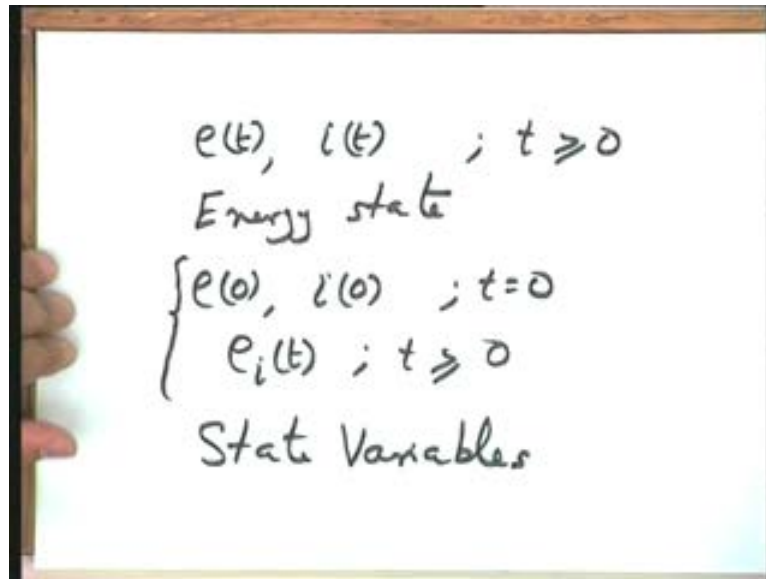 e(t), i(t) ; t ⩾ 0
Energy state
{ e(0), i(0) ; t=0
e_i(t) ; t ⩾ 0
State Variables